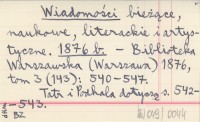 Wiadomości bieżące,
naukowe, literackie i artys-
tyczne. 1876 b. - Biblioteka
Warszawska (Warszawa) 1876,
tom 3 (143): 540-547.
Tatr i Podhala dotyczą s. 542-
-543.
BZ